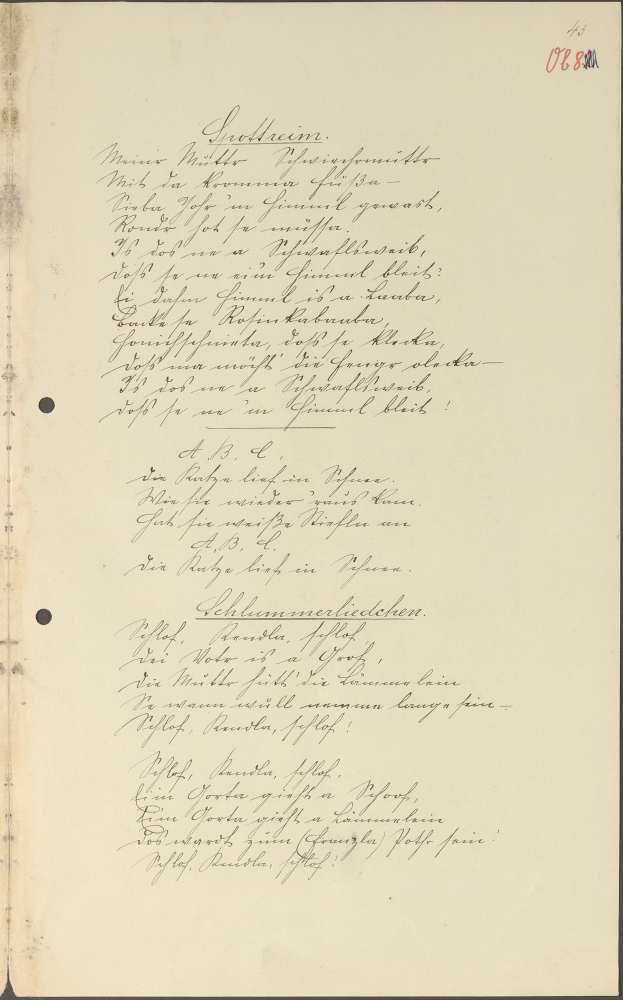 43
Spottreim.
Meine Mutter Schwiechermutter
Mit da kromma Füßa –
Sieba Johr 'm Himmel gewast,
Rondr hot se müssa.
Is dos ne a Schwaflsweib,
Doß se ne eim Himmel bleit?
Ei dahm Himmel is a Laaba,
Backe se Rosinkabaaba,
Honichschnieta, doß se klecka,
Doß ma möcht' die Fengr olecka –
Is dos ne a Schwaflsweib,
Doß se ne 'm Himmel bleit!
A. B. C.
Die Katze lief in Schnee.
Wie sie wieder 'raus kam.
Hat sie weiße Stiefln an
A. B. C.
Die Katze lief in Schnee.
Schlummerliedchen.
Schlof, Kendla, schlof,
Dei Votr is a Grof,
Die Muttr hütt' die Lämmelein
Se wann wull nemme lange sein –
Schlof, Kendla, schlof!
Schlof, Kendla, schlof,
Eim Gorta gieht a Schoof,
Eim Gorta gieht a Lämmelein
Dos wardt zum (Franzla) Pothe sein!
Schlof, Kendla, schlof!